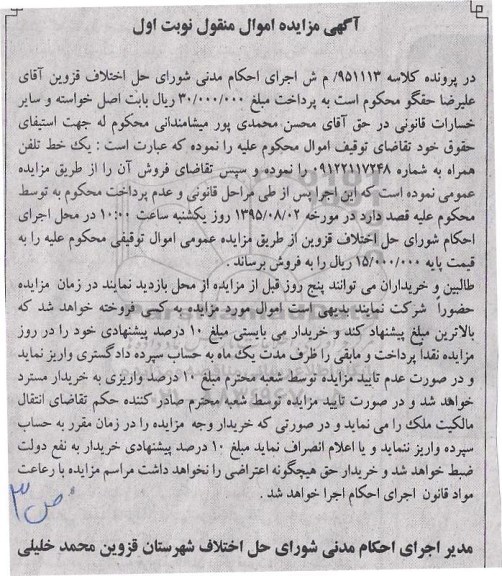 آگهی مزایده اموال منقول نوبت اول
در پرونده کلاسه ۹۵۱۱۱۳/ م ش اجرای احکام مدنی شورای حل اختلاف قزوین آقای
علیرضا حقگو محکوم است به پرداخت مبلغ ۳۰/۰۰۰/۰۰۰ ریال بابت اصل خواسته و سایر
خسارات قانونی در حق آقای محسن محمدی پور میشامندانی محکوم له جهت استیفای
حقوق خود تقاضای توقیف اموال محکوم علیه را نموده که عبارت است : یک خط تلفن
همراه به شماره ۰۹۱۲۲۱۱۷۲۴۸ را نموده و سپس تقاضای فروش آن را از طریق مزایده
عمومی نموده است که این اجرا پس از طی مراحل قانونی و عدم پرداخت محکوم به توسط
محکوم علیه قصد دارد در مورخه ۱۳۹۵/۰۸/۰۲ روز یکشنبه ساعت ۱۰:۰۰ در محل اجرای
احکام شورای حل اختلاف قزوین از طریق مزایده عمومی اموال توقیفی محکوم علیه را به
قیمت پایه ۱۵/۰۰۰/۰۰۰ ریال را به فروش برساند .
طالبین و خریداران می توانند پنج روز قبل از مزایده از محل بازدید نمایند در زمان مزایده
حضوراً شرکت نمایند بدیهی است اموال مورد مزایده به کسی فروخته خواهد شد که
بالاترین مبلغ پیشنهاد کند و خریدار می بایستی مبلغ ۱۰ درصد پیشنهادی خود را در روز
مزایده نقداً پرداخت و مابقی را ظرف مدت یک ماه به حساب سپرده دادگستری واریز نماید
و در صورت عدم تایید مزایده توسط شعبه محترم مبلغ ۱۰ درصد واریزی به خریدار مسترد
خواهد شد و در صورت تایید مزایده توسط شعبه محترم صادر کننده حکم تقاضای انتقال
مالکیت ملک را می نماید و در صورتی که خریدار وجه مزایده را در زمان مقرر به حساب
سپرده واریز ننماید و یا اعلام انصراف نماید مبلغ ۱۰ درصد پیشنهادی خریدار به نفع دولت
ضبط خواهد شد و خریدار حق هیچگونه اعتراضی را نخواهد داشت مراسم مزایده با رعاعت
مواد قانون اجرای احکام اجرا خواهد شد .
ص ۳
مدیر اجرای احکام مدنی شورای حل اختلاف شهرستان قزوین محمد خلیلی